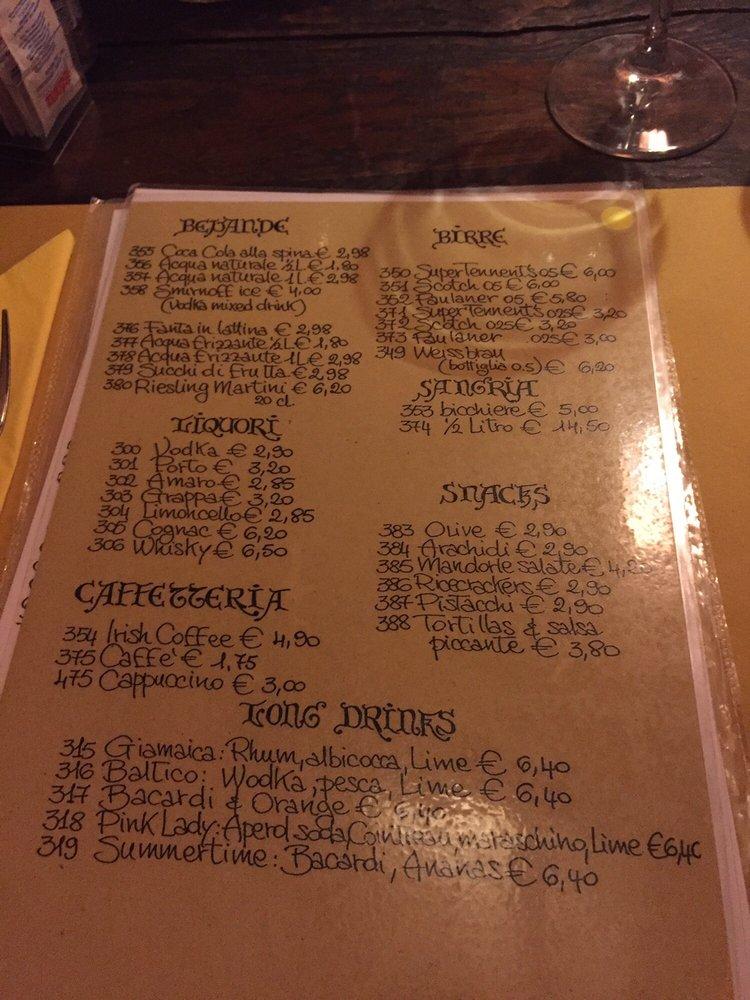 BEVANDE
355 Coca Cola alla spina € 2,98
356 Acqua naturale ½ L € 1,80
357 Acqua naturale 1 L € 2,98
358 Smirnoff ice € 4,00
(Vodka mixed drink)
376 Fanta in lattina € 2,98
377 Acqua frizzante ½ L € 1,80
378 Acqua frizzante 1 L € 2,98
379 Succhi di frutta € 2,98
380 Riesling Martini € 6,20
20 cl.
LIQUORI
300 Vodka € 2,90
301 Porto € 3,20
302 Amaro € 2,85
303 Grappa € 3,20
304 Limoncello € 2,85
305 Cognac € 6,20
306 Whisky € 6,50
CAFFETTERIA
354 Irish Coffee € 4,90
375 Caffè € 1,75
475 Cappuccino € 3,00
BIRRE
350 Super Tennent's 05 € 6,00
351 Scotch 05 € 6,00
352 Paulaner 05 € 5,80
371 Super Tennents 025 € 3,20
372 Scotch 025 € 3,20
373 Paulaner 025 € 3,00
349 Weissbrau
(bottiglia 0.5) € 6,20
SANGRIA
353 bicchiere € 5,00
374 ½ Litro € 14,50
SNACKS
383 Olive € 2,90
384 Arachidi € 2,90
385 Mandorle salate € 4,20
386 Ricecrackers € 2,90
387 Pistacchi € 2,90
388 Tortillas & salsa
piccante € 3,80
LONG DRINKS
315 Giamaica: Rhum, albicocca, Lime € 6,40
316 Baltico: Wodka, pesca, Lime € 6,40
317 Bacardi & Orange € 6,40
318 Pink Lady: Aperol soda, Cointreau, maraschino, Lime € 6,40
319 Summertime: Bacardi, Ananas € 6,40